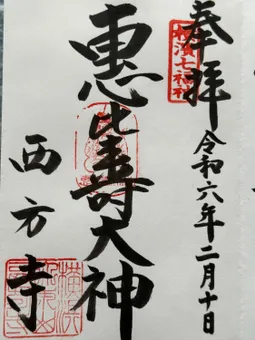 奉拝
横濱七福神
令和六年二月十日
恵比壽大神
西方寺